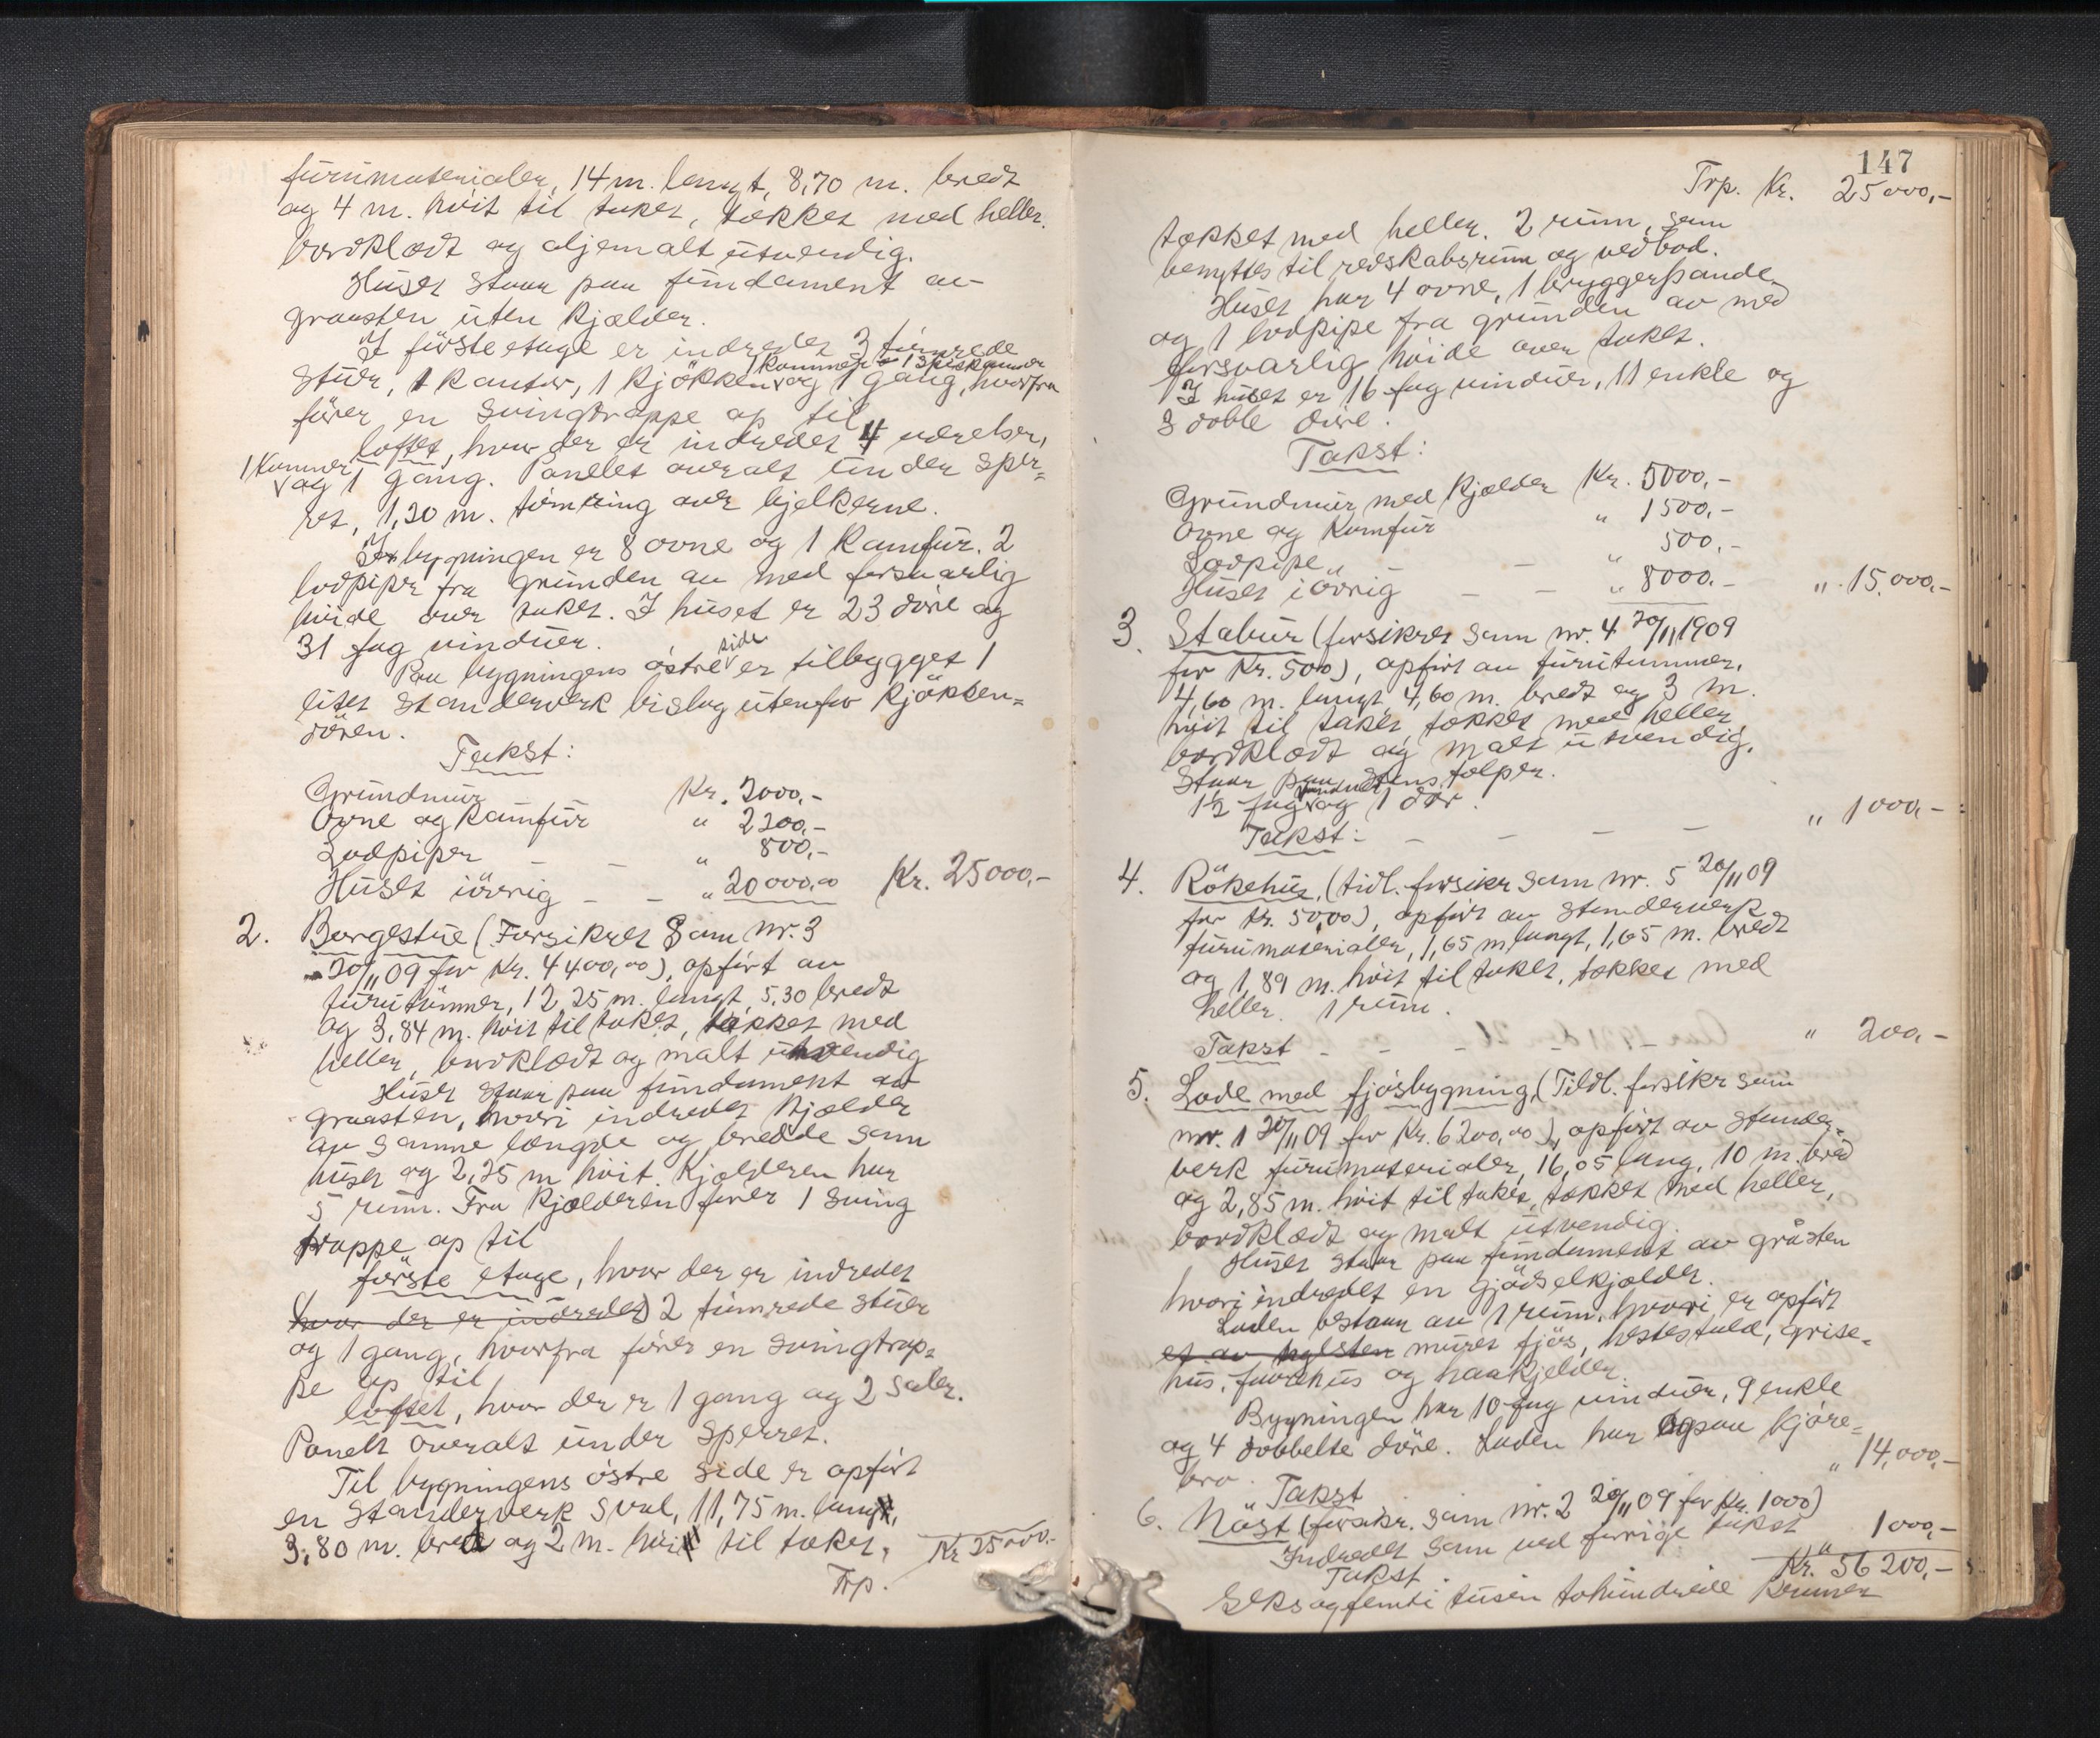 furumaterialer, 14 m. langt, 8,70 m. bredt
og 4 m. höit til taket, tækket med heller.
bordklædt og oljemalt utvendig.
Huset staar paa fundament av
graasten uten kjælder.
I förste etage er indredet 3 tömrede
1 kammer o 1 Spiskammer
stuer, 1 Kontor, 1 kjökken og 1 gang, hvorfra
förer en svingtrappe op til
loftet, hvor der er indredet 4 værelser,
1 Kammer
og 1 gang. Panelet overalt under sper-
ret, 1,20 m. tömring over bjelkerne.
I bygningen er 8 ovne og 1 Komfur. 2
lodpiper fra grunden av med forsvarlig
höide over taket. I huset er 23 döre og
31 fag vinduer.
side
Paa bygningens östre er tilbygget 1
litet standerverk bislag utenfor kjökken=
dören.
Takst:
Grundmur Kr. 2000,-
Ovne og Komfur " 2200,-
Lodpiper - - " 800,-
Huset iövrig - - " 20000,00 Kr. 25000,-
2. Borgestue (Forsikret Som Nr. 3
20/11 09 for Kr. 4400,00), opfört av
furutömmer, 12,25 m. langt, 5,30 bredt
og 3,84 m. höit til taket, tækket med
heller, bordklædt og malt utvendig
Huset staar paa fundament av
graasten, hvori indredet Kjælder
av samme længde og bredde som
huset og 2,25 m höit. Kjælderen har
5 rum. Fra Kjælderen förer 1 sving
trappe op til
förste etage, hvor der er indredet
hvor der er indredet) 2 tömrede stuer
og 1 gang, hvorfra förer en svingtrap=
pe op til
loftet, hvor der er 1 gang og 2 saler.
Panelt overalt under sperret.
Til bygningens östre side er opfört
en standerverk sval, 11,75 m. lang,
3,80 m. bred og 2 m. höi til taket,
Kr 25000.-
Trp.
147
Trp. Kr. 25000,-
tækket med heller. 2 rum, som
benyttes til redskabsrum og vedbod.
Huset har 4 ovne, 1 bryggerpande
og 1 lodpipe fra grunden av med
forsvarlig höide over taket.
I huset er 16 fag vinduer, 11 enkle og
3 doble döre.
Takst:
Grundmur med Kjælder Kr. 5000,-
Ovne og Komfur " 1500,-
Lodpipe - - 500,-
Huset iövrig - - " 8000.- " 15,000,-
3. Stabur (forsikret Som nr. 4 20/11 1909
for Kr. 500), opfört av furutømmer,
4,60 m. langt, 4,60 m. bredt og 3 m.
höit til taket, tækket med heller,
bordklædt og malt utvendig.
Staar paa stens tolper.
vinduer
1½ fag og 1 dør.
Takst: - - - - " 1000,-
4. Rökehus, (tidl. forsikr som nr. 5 20/11 09
for Kr. 50,00), opfört av standerverk
furumaterialer, 1,65 m. langt, 1,65 m. bredt
og 1,89 m. höit til taket, tækket med
heller. 1 rum.
Takst - - - - - " 200,-
5. Lade med fjösbygning, (Tidl. forsikr som
nr. 1 20/11 09 for Kr. 6200,00), opfört av stander=
verk furumaterialer, 16,05 lang, 10 m. bred
og 2,85 m. höit til taket, tækket med heller,
bordklædt og malt utvendig.
Huset staar paa fundament av gråsten
hvori indredet en gjödselkjælder.
Laden bestaar av 1 rum, hvori er opfört
et av muret fjös, hestestald, grise-
hus, faarehus og haakjelder.
Bygningen har 10 fag vinduer, 9 enkle
og 4 dobbelte döre. Laden har ogsaa kjöre=
bro. " 14,000,-
Takst
6. Nöst (forsikr. som nr. 2 20/11 09 for Kr. 1000)
Indredet som ved forrige takst
Takst " 1000,-
Kr. 56200,-
Seks og femti tusen tohundrede Kroner